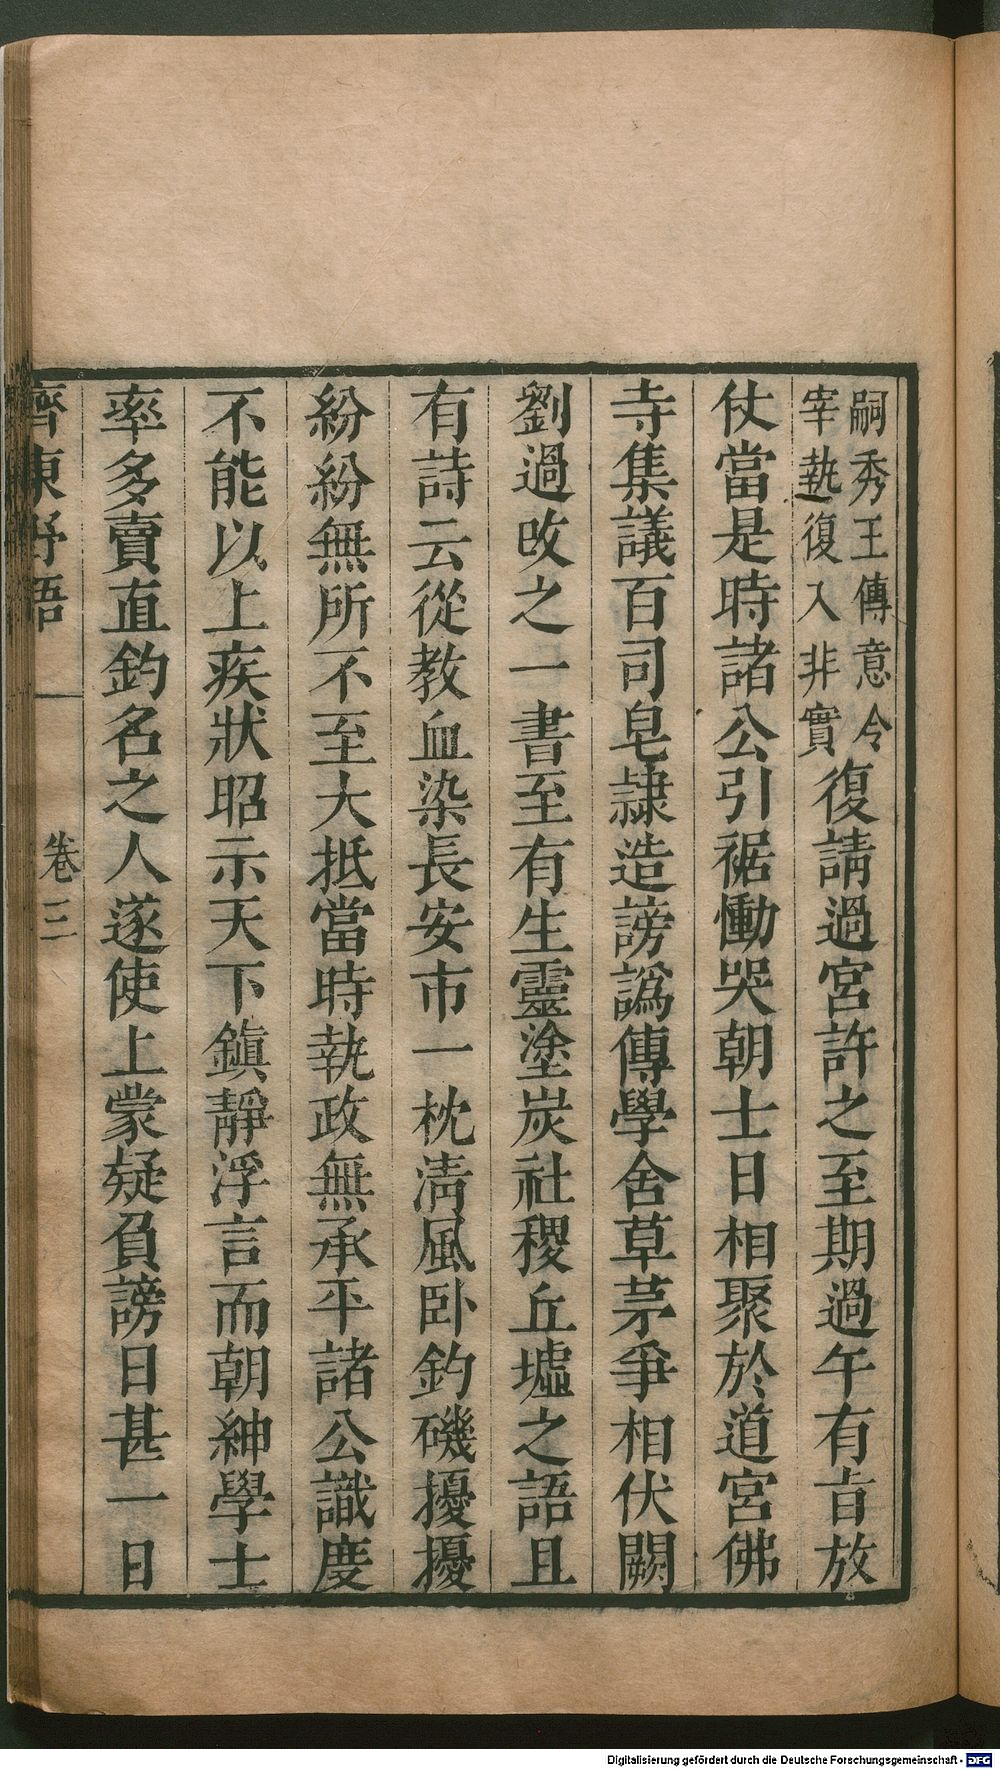 嗣秀王傳意令
宰執復入非實
復請過宮許之至期過午有旨放
仗當是時諸公引裾慟哭朝士日相聚於道宮佛
寺集議百司皂隷造謗譌傳學舍草茅爭相伏闕
劉過改之一書至有生靈塗炭社稷丘墟之語且
有詩云從教血染長安市一枕淸風卧釣磯擾擾
紛紛無所不至大抵當時執政無承平諸公識度
不能以上疾狀昭示天下鎮靜浮言而朝紳學士
率多賣直釣名之人遂使上蒙疑負謗日甚一日
齊東野語
卷三
Digitalisierung gefördert durch die Deutsche Forschungsgemeinschaft - DFG